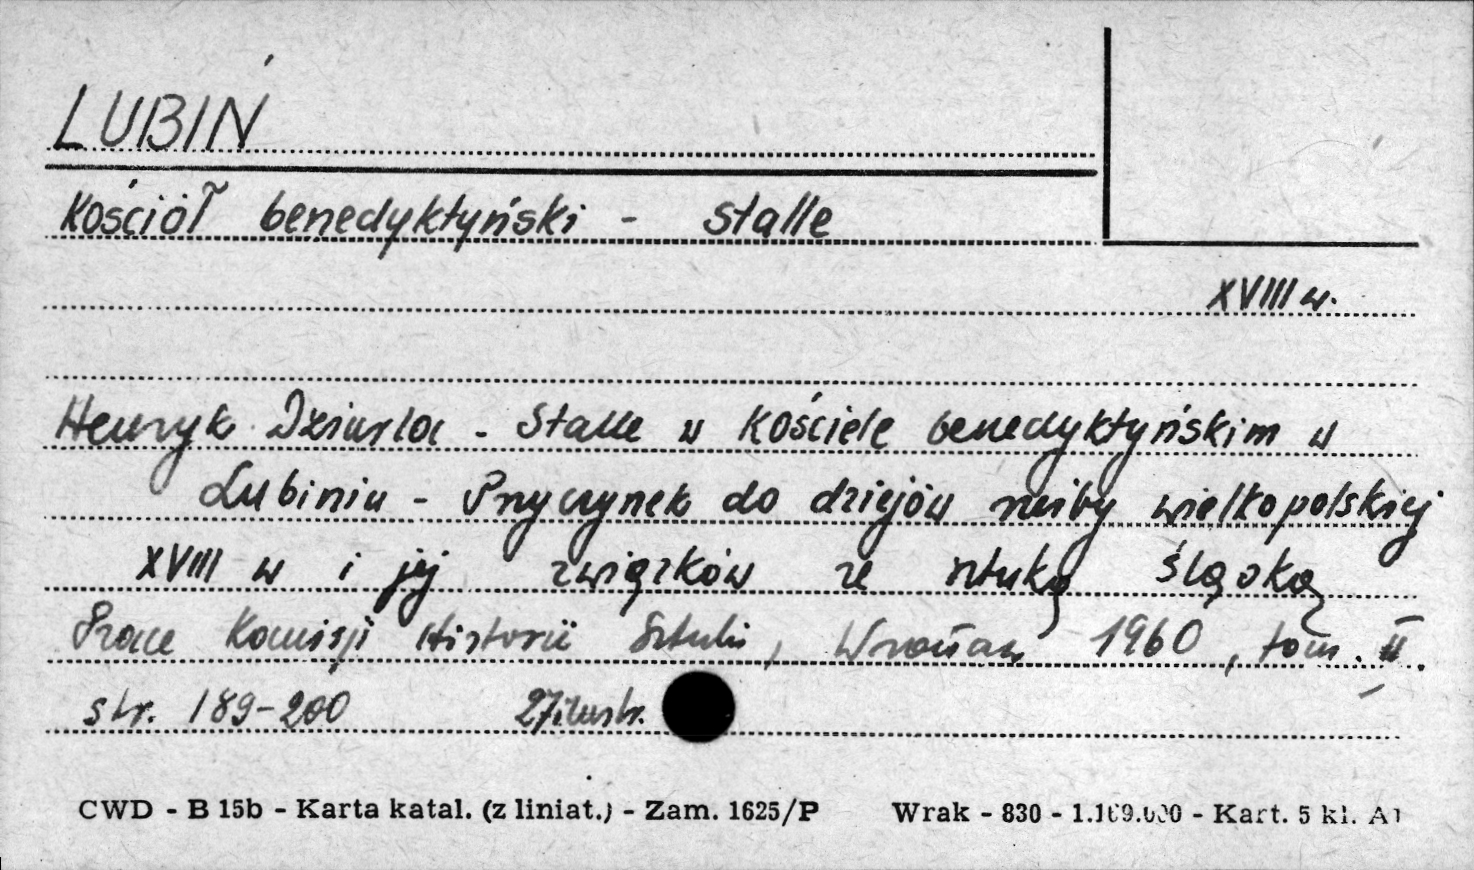 LUBIŃ
Kościół benedyktyński - stalle
XVIII w.
Henryk Dziurla - Stalle w Kościele benedyktyńskim w
Lubiniu - Przyczynek do dziejów rzeźby wielkopolskiej
XVIII w i jej związków ze sztuką śląską
Prace Komisji Historii Sztuki, Wrocław 1960, tom. II.
str. 189-200 27 ilustr.
CWD - B 15b - Karta katal. (z liniat.) - Zam. 1625/P Wrak - 830 - 1.169.000 - Kart. 5 kl. A1